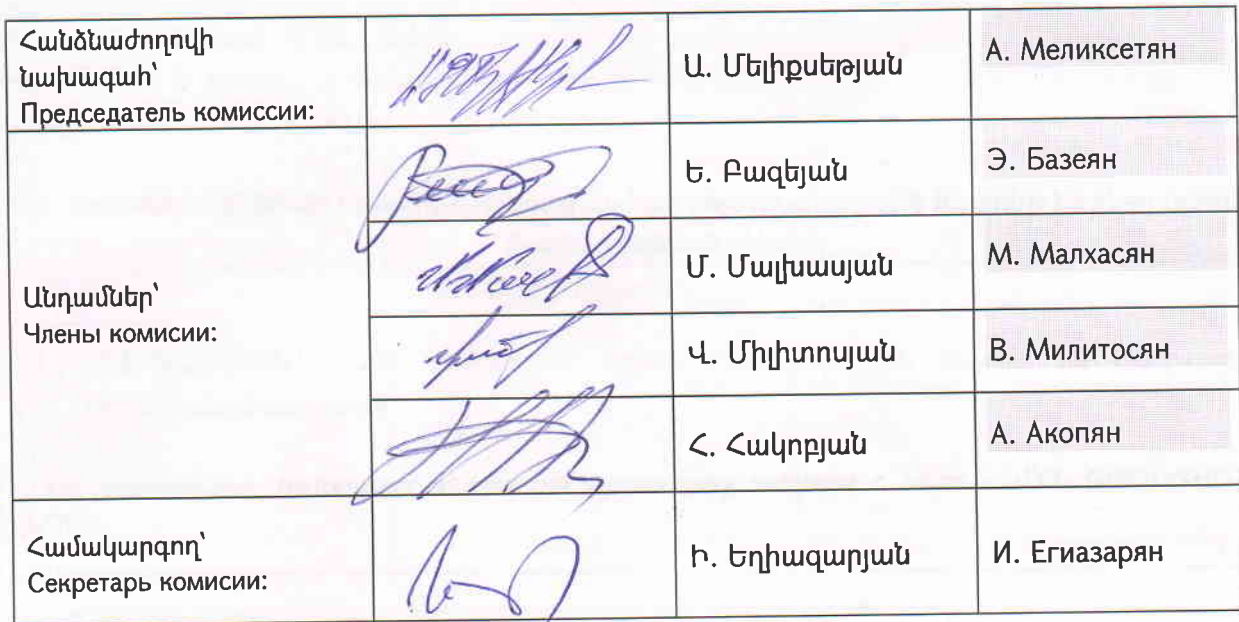 Հանձնաժողովի
նախագահ՝
Председатель комиссии:
Ա. Մելիքսեթյան
А. Меликсетян
Անդամներ՝
Члены комисии:
Ե. Բազեյան
Э. Базеян
Մ. Մալխասյան
М. Малхасян
Վ. Միլիտոսյան
В. Милитосян
Հ. Հակոբյան
А. Акопян
Համակարգող՝
Секретарь комисии:
Ի. Եղիազարյան
И. Егиазарян